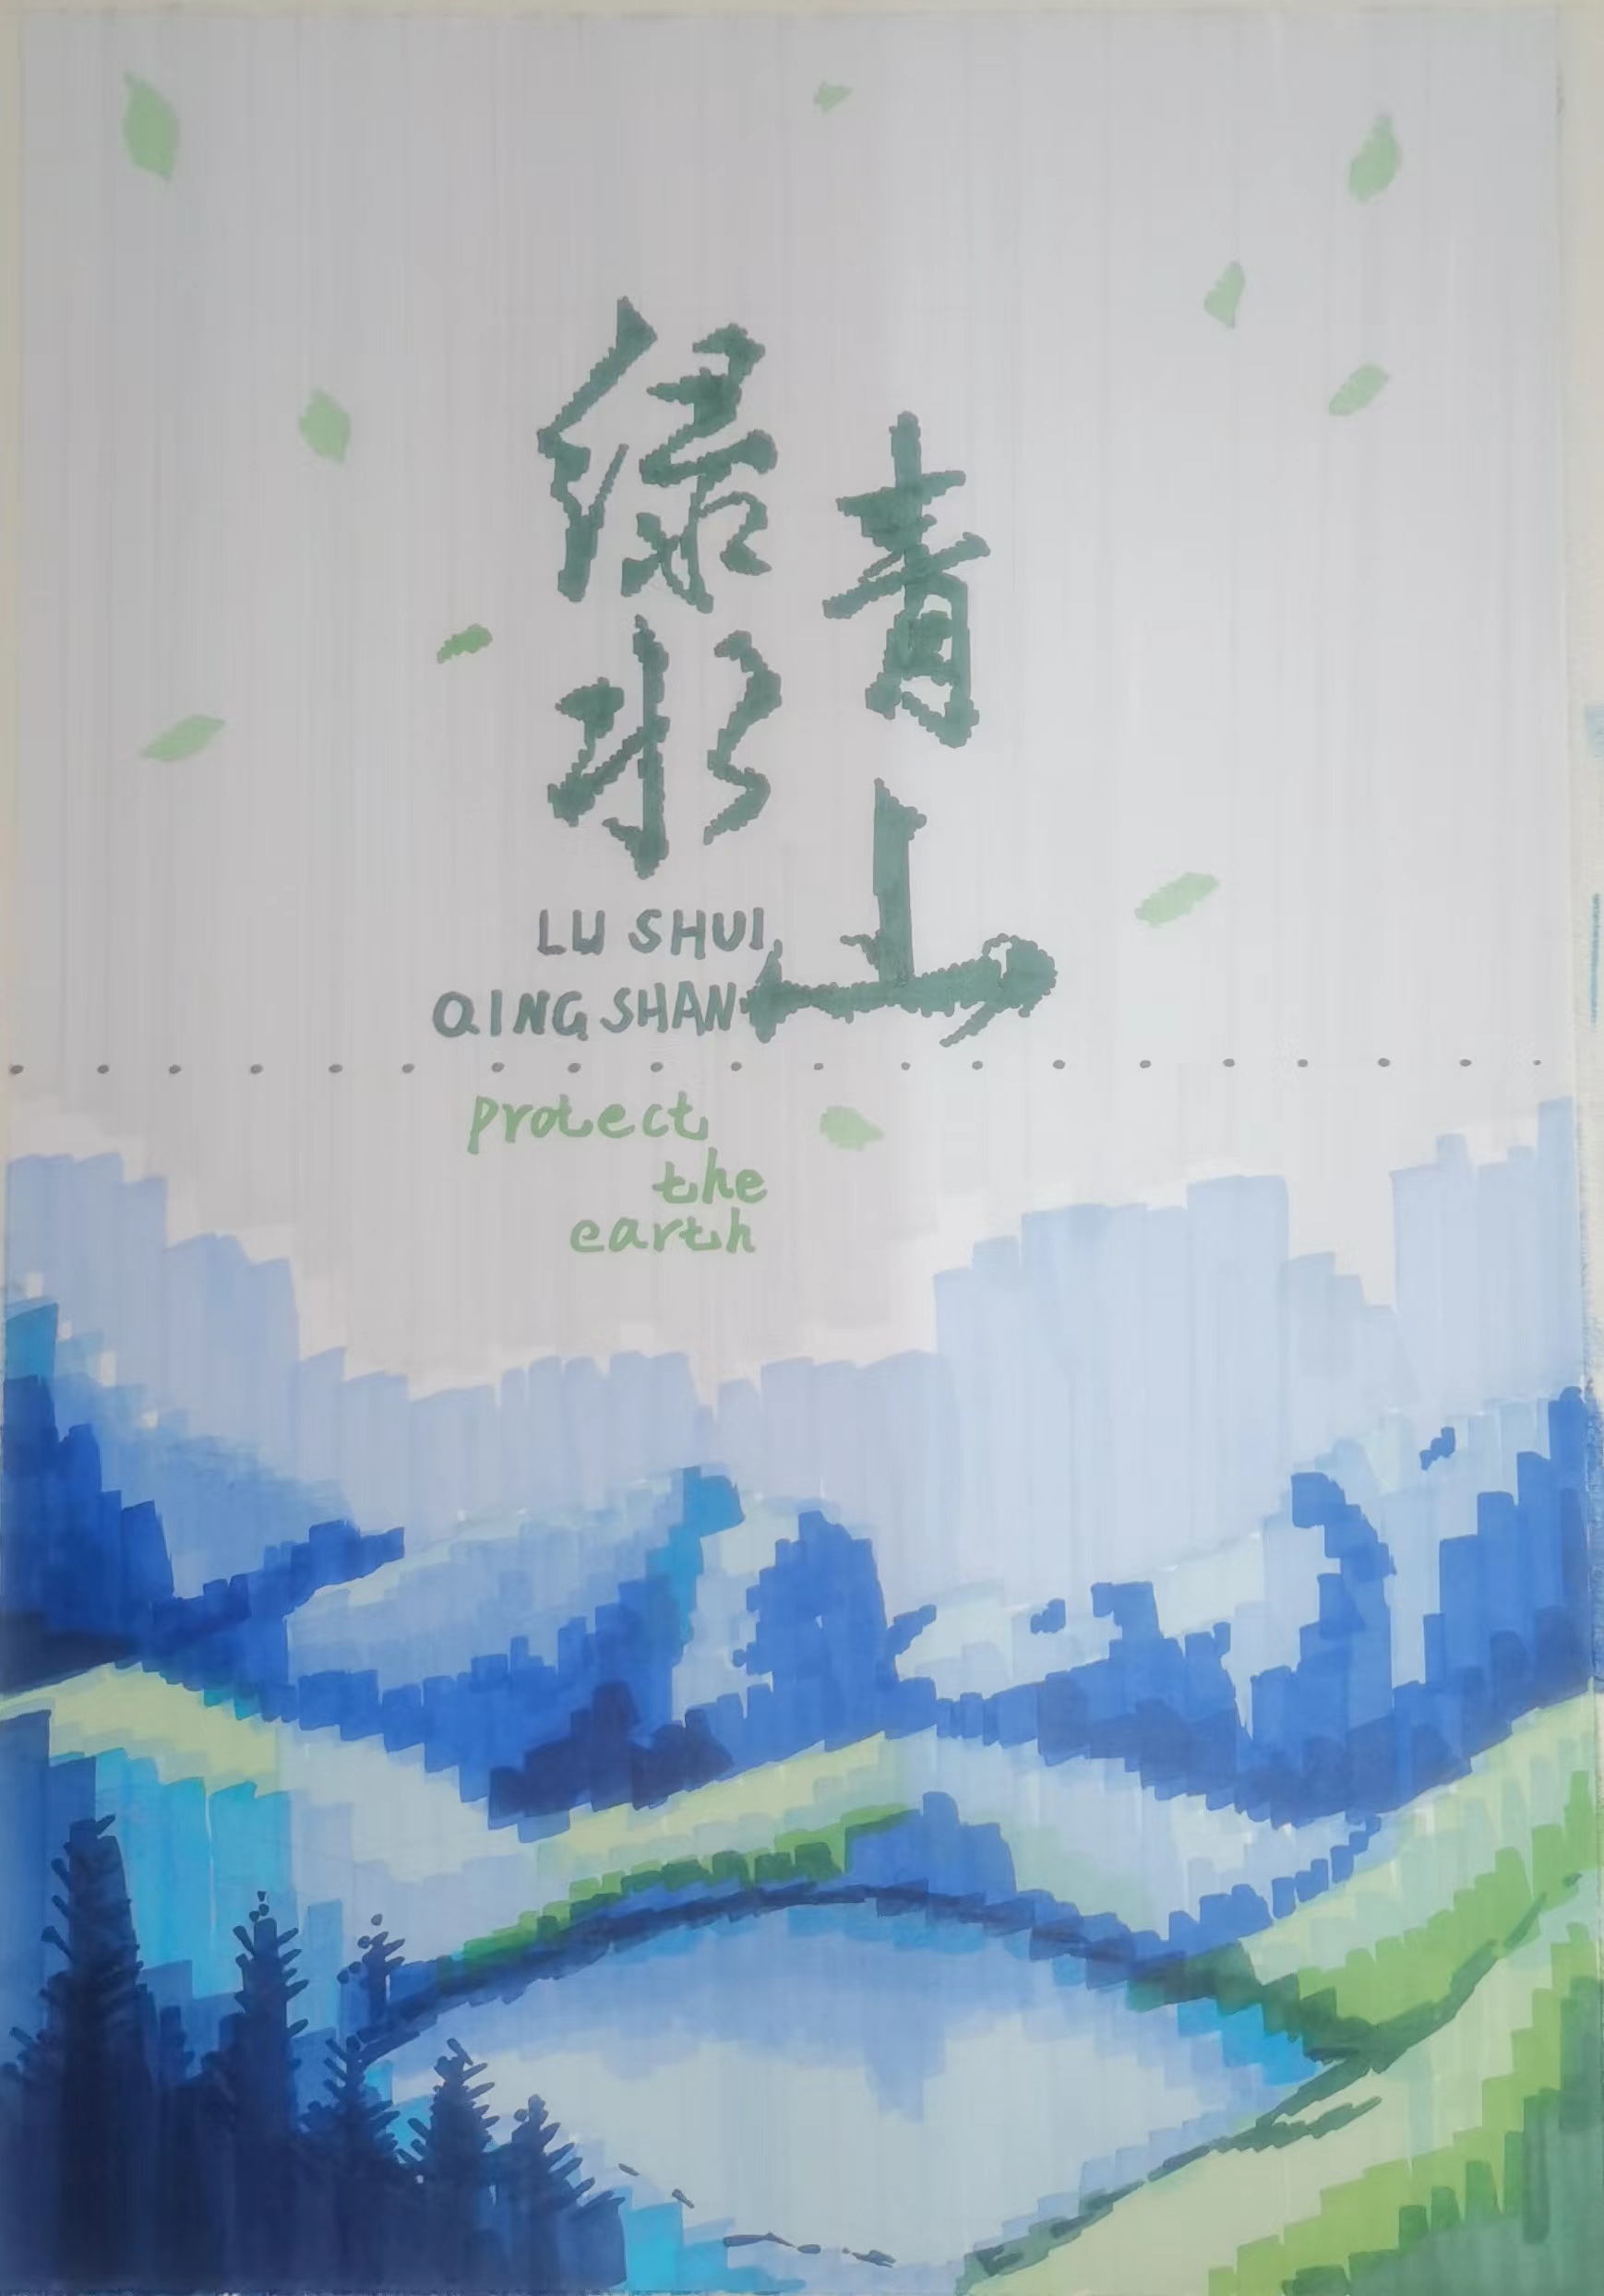 绿水
青山
LU SHUI,
QING SHAN
protect
the
earth